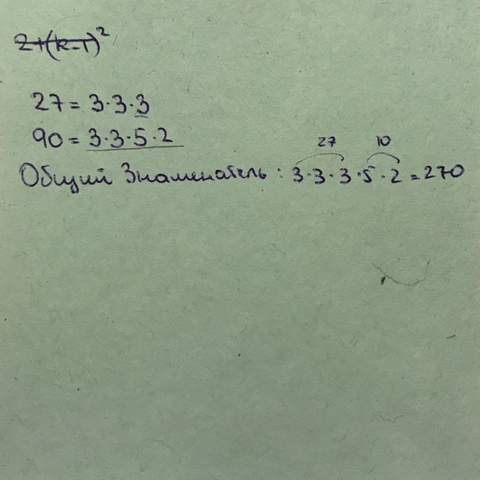 2+(k-1)²
27 = 3·3·3
90 = 3·3·5·2
27 10
Общий Знаменатель : 3·3·3·5·2 = 270